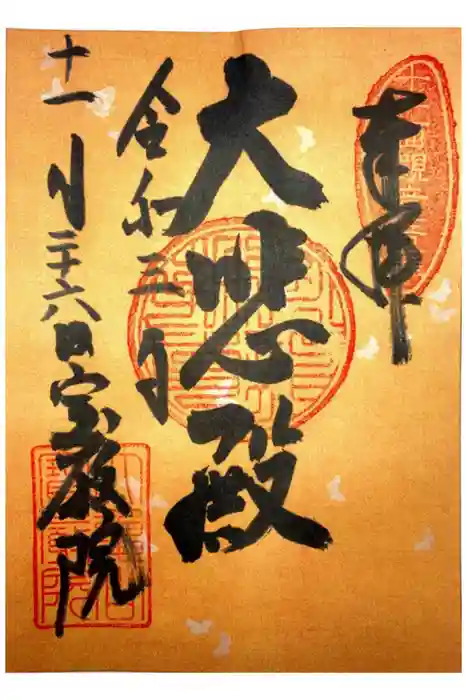 奉拝
大悲殿
令和三年
十一月二十六日
宝教院